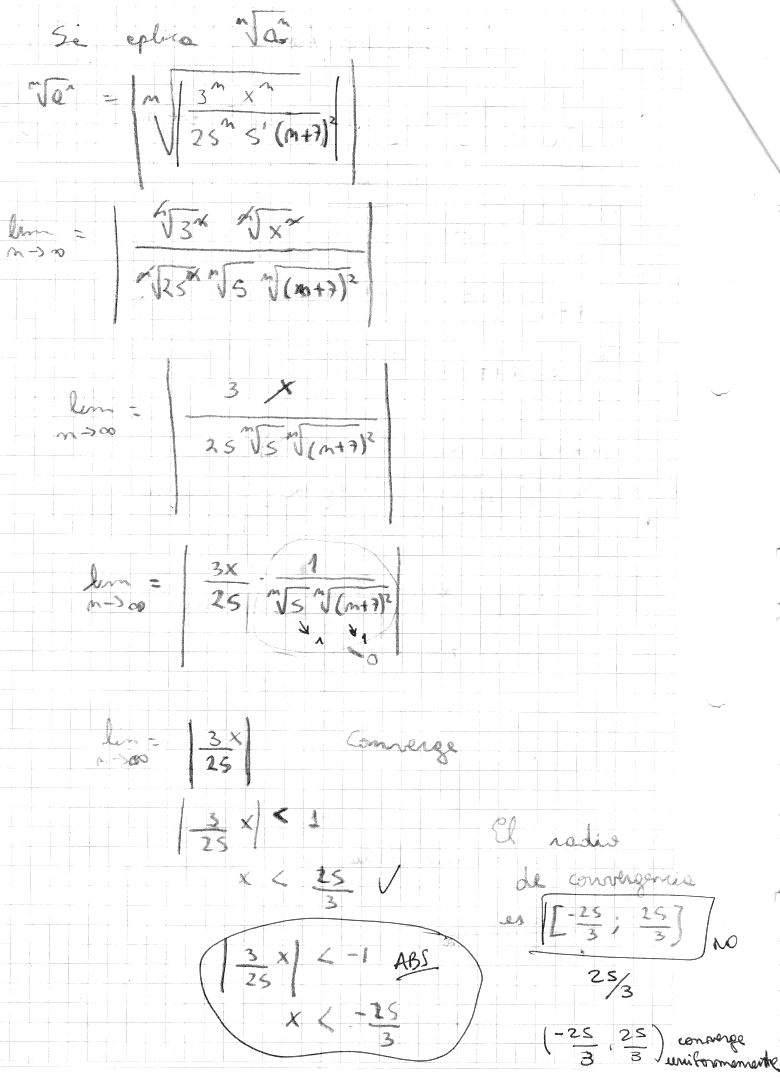 Se eplica ⁿ√aⁿ
ⁿ√aⁿ = | ⁿ√| 3ⁿ xⁿ / 25ⁿ 5¹ (n+7)² | |
lim n→∞ = | ⁿ√3ⁿ ⁿ√xⁿ / ⁿ√25ⁿ ⁿ√5 ⁿ√(n+7)² |
lim n→∞ = | 3 x / 25 ⁿ√5 ⁿ√(n+7)² |
lim n→∞ = | 3x/25 · 1 / ⁿ√5 ⁿ√(n+7)² |
↘1 ↘1
0
lim n→∞ = | 3x/25 | Converge
| 3/25 x | < 1
x < 25/3 ✓
El radio
de convergencia
es [-25/3 ; 25/3] NO
25/3
| 3/25 x | < -1 ABS
x < -25/3
(-25/3 , 25/3) converge
uniformemente